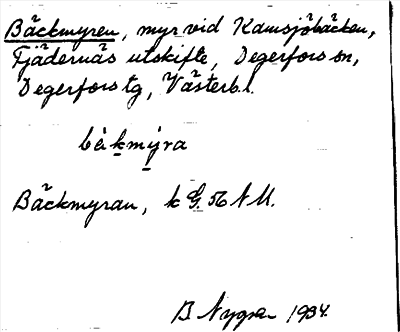 Bäckmyren, myr vid Kamsjöbäcken,
Fjädernäs utskifte, Degerfors sn,
Degerfors tg, Västerb. l.
bèkmýra
Bäckmyran, k G. 56 N M.
B Nygren 1934.